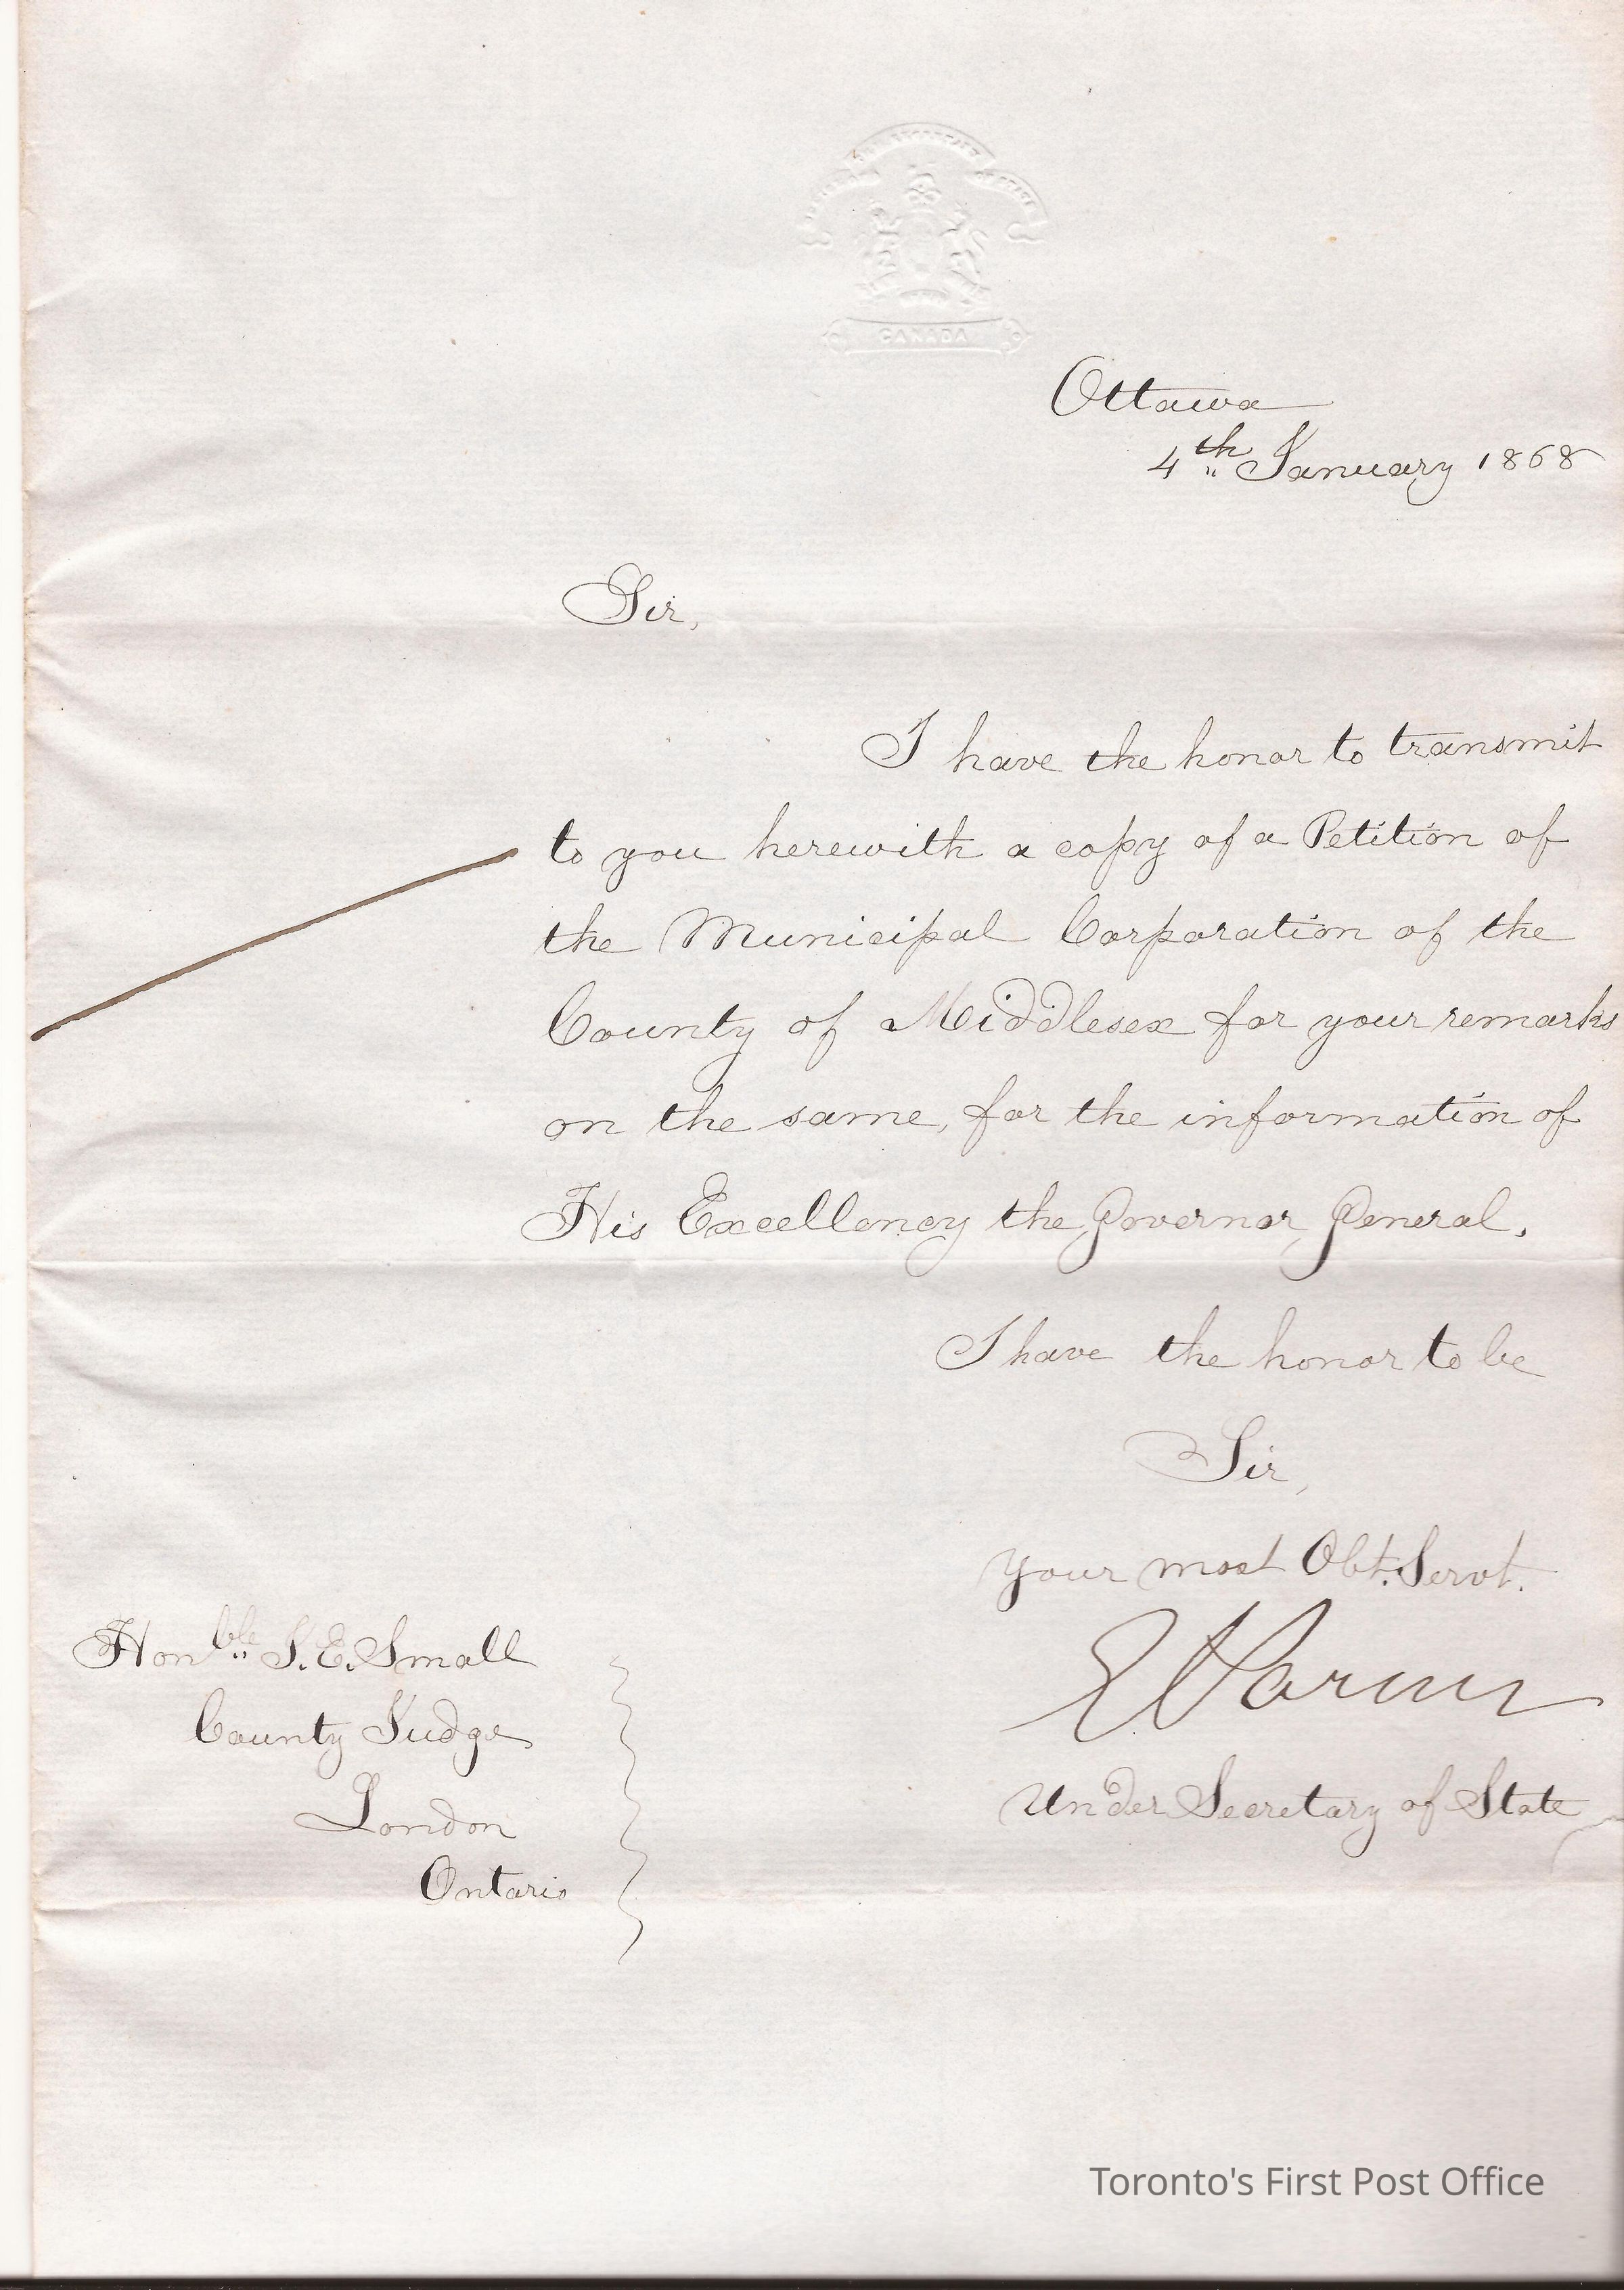 CANADA
Ottawa
4th January 1868
Sir,
I have the honor to transmit
to you herewith a copy of a Petition of
the Municipal Corporation of the
County of Middlesex for your remarks
on the same, for the information of
His Excellency the Governor General.
I have the honor to be
Sir,
your most Obt. Servt.
E Parent
Under Secretary of State
Honble J. E. Small
County Judge
London
Ontario
Toronto's First Post Office